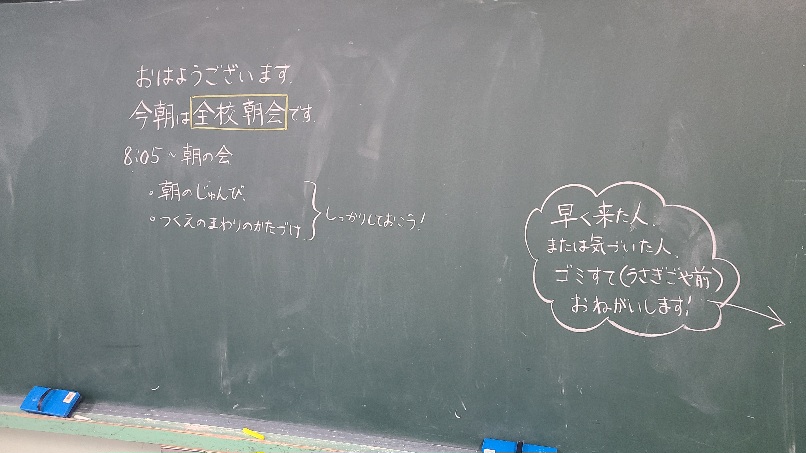 おはようございます。
今朝は全校朝会です。
8:05～朝の会
・朝のじゅんび
・つくえのまわりのかたづけ
しっかりしておこう!
早く来た人、
または気づいた人、
ゴミすて(うさぎごや前)
おねがいします!